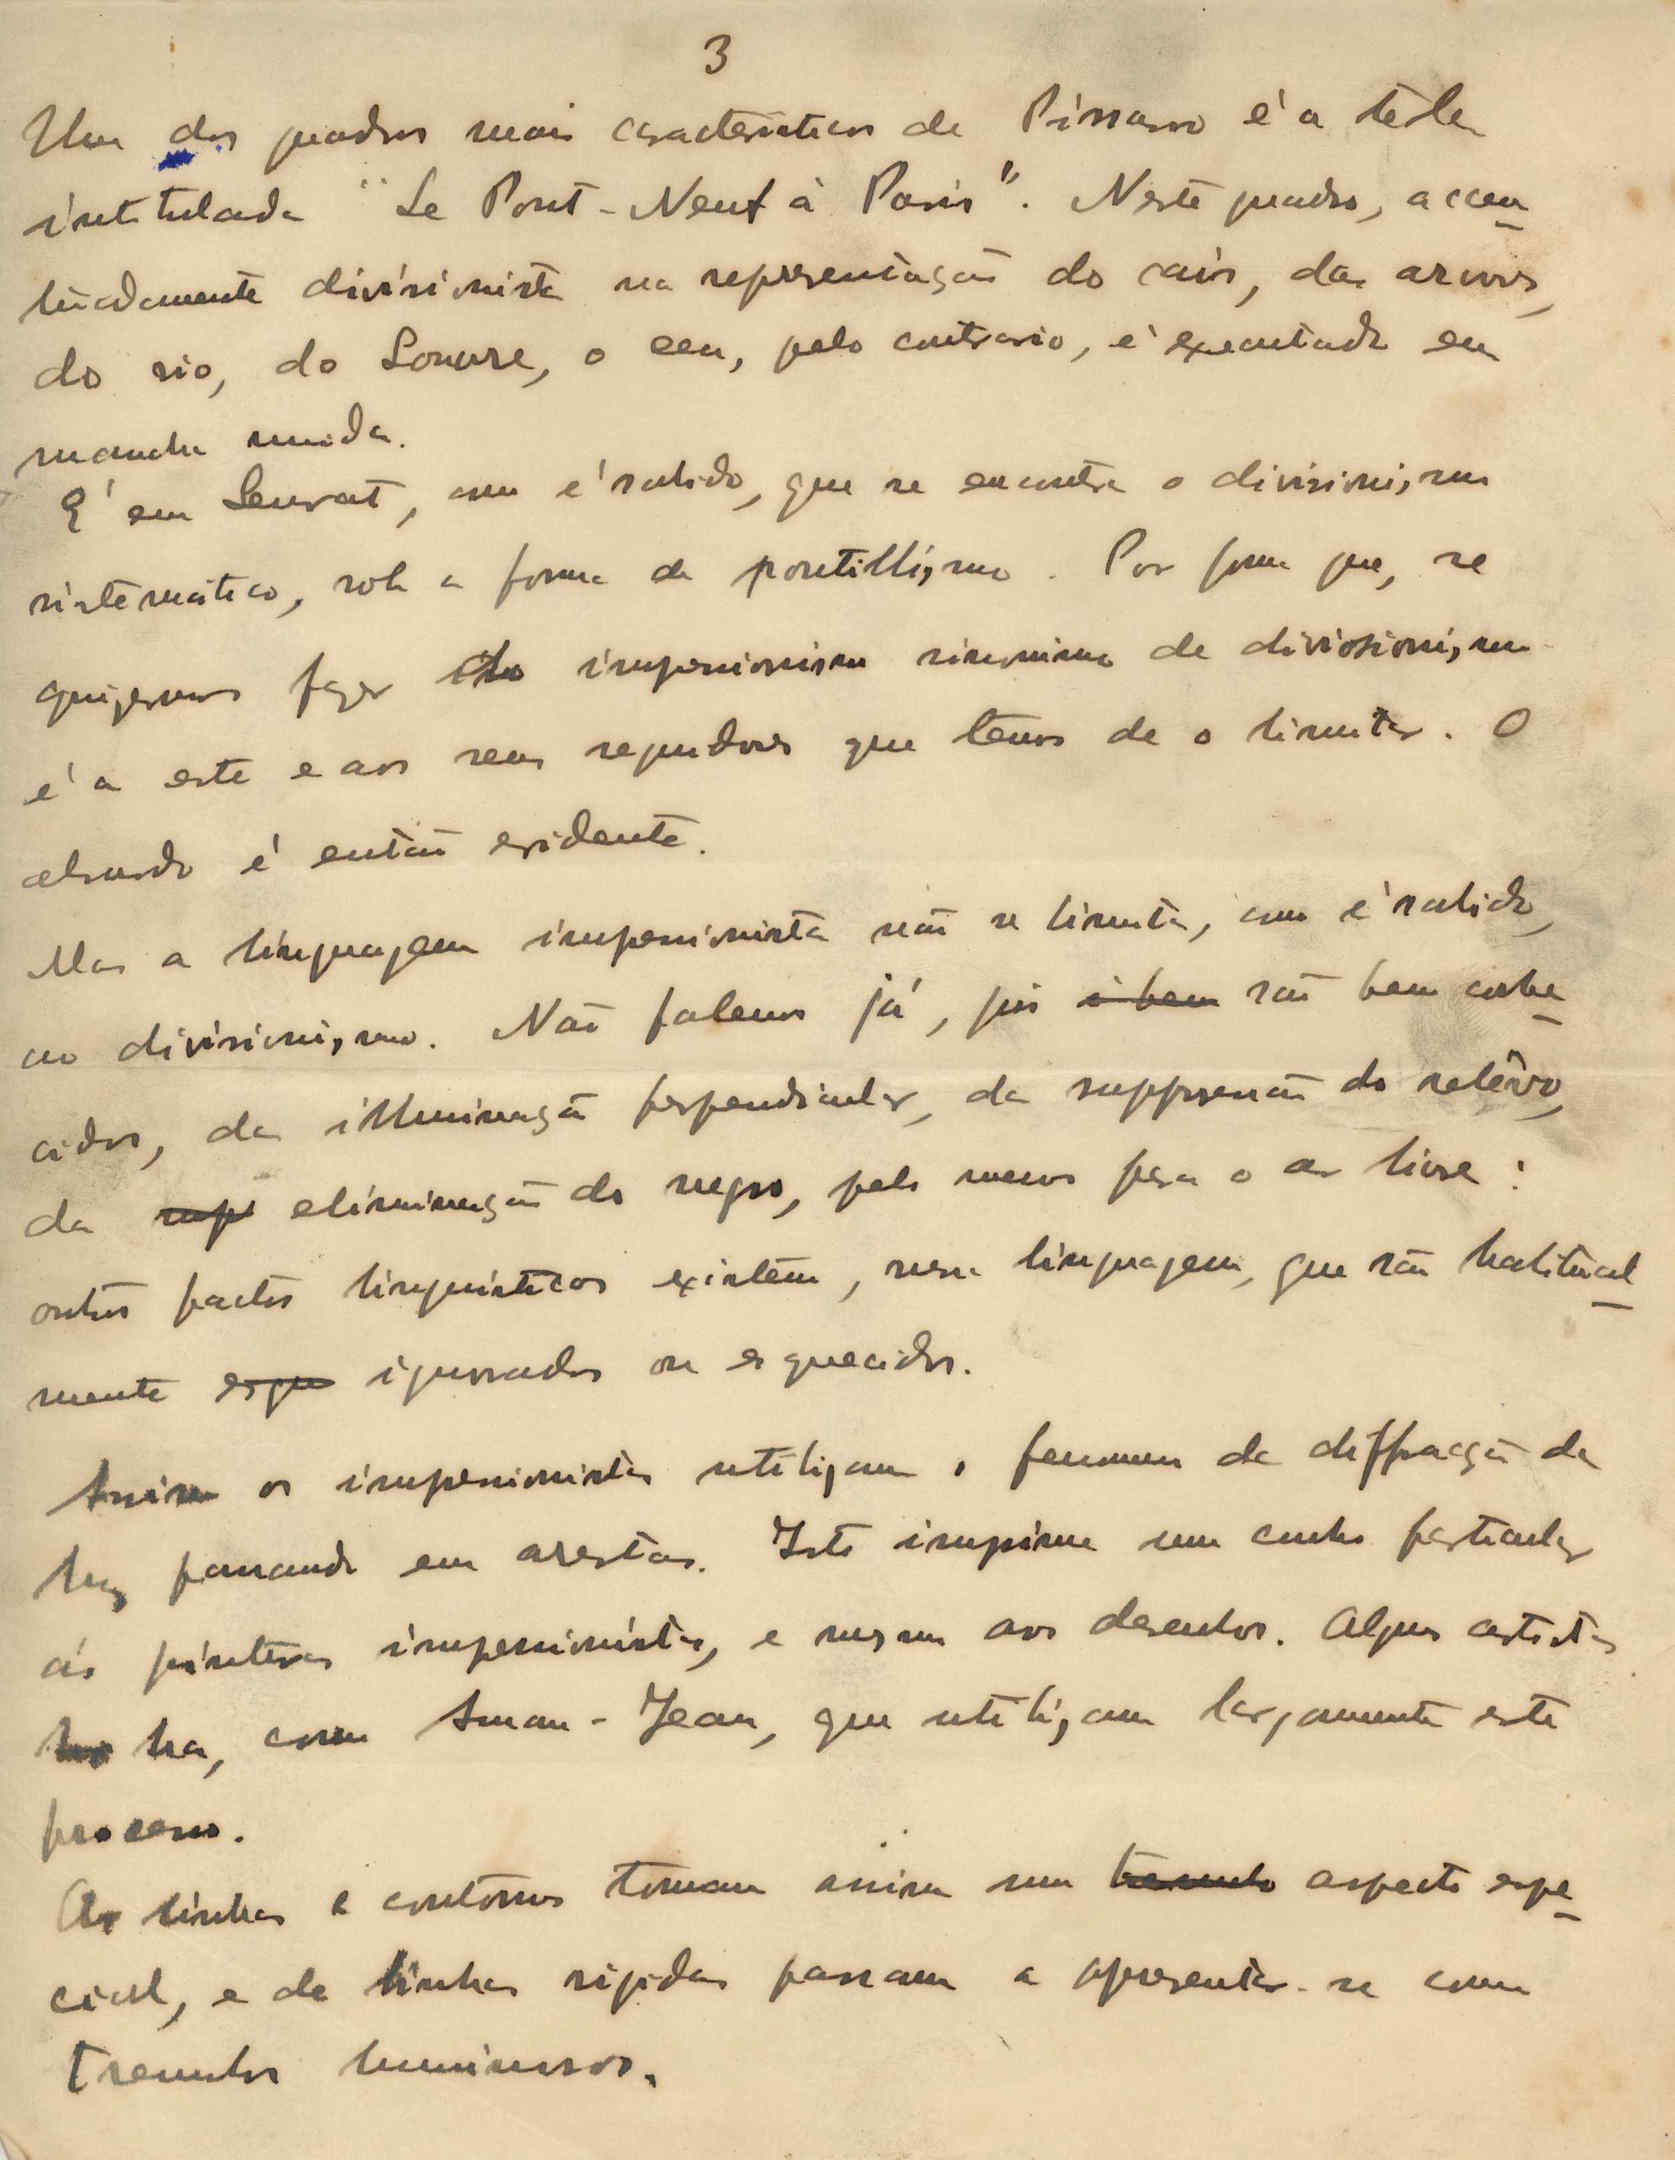 3
Um dos quadros mais caracteristicos de Pissarro é a tela
intitulada "Le Pont-Neuf à Paris". Neste quadro, accen-
tuadamente divisionista na representação do cais, das arvores,
do rio, do Louvre, o ceu, pelo contrario, é executado em
mancha unida.
É em Seurat, como é sabido, que se encontra o divisionismo
sistemático, sob a forma de pontillismo. Por forma que, se
quizermos fazer do impressionismo sinonimo de divisionismo
é a este e aos seus seguidores que temos de o limitar. O
absurdo é então evidente.
Mas a linguagem impressionista não se limita, como é sabido,
ao divisionismo. Não falemos já, pois é bem são bem conhe-
cidos, da illuminação perpendicular, da suppressão do relêvo,
da sup eliminação do negro, pelo menos para o ar livre:
outros factos linguisticos existem, nessa linguagem, que são habitual-
mente esque ignorados ou esquecidos.
Assim os impressionistas utilizam o fenomeno da diffracção da
luz passando em arestas. Isto imprime um cunho particular
ás pinturas impressionistas, e mesmo aos desenhos. Alguns artistas
ha, como Aman-Jean, que utilizam largamente este
processo.
As linhas e contornos tomam assim um tremulo aspecto espe-
cial, e de linhas rigidas passam a apresentar-se como
tremulos luminosos.